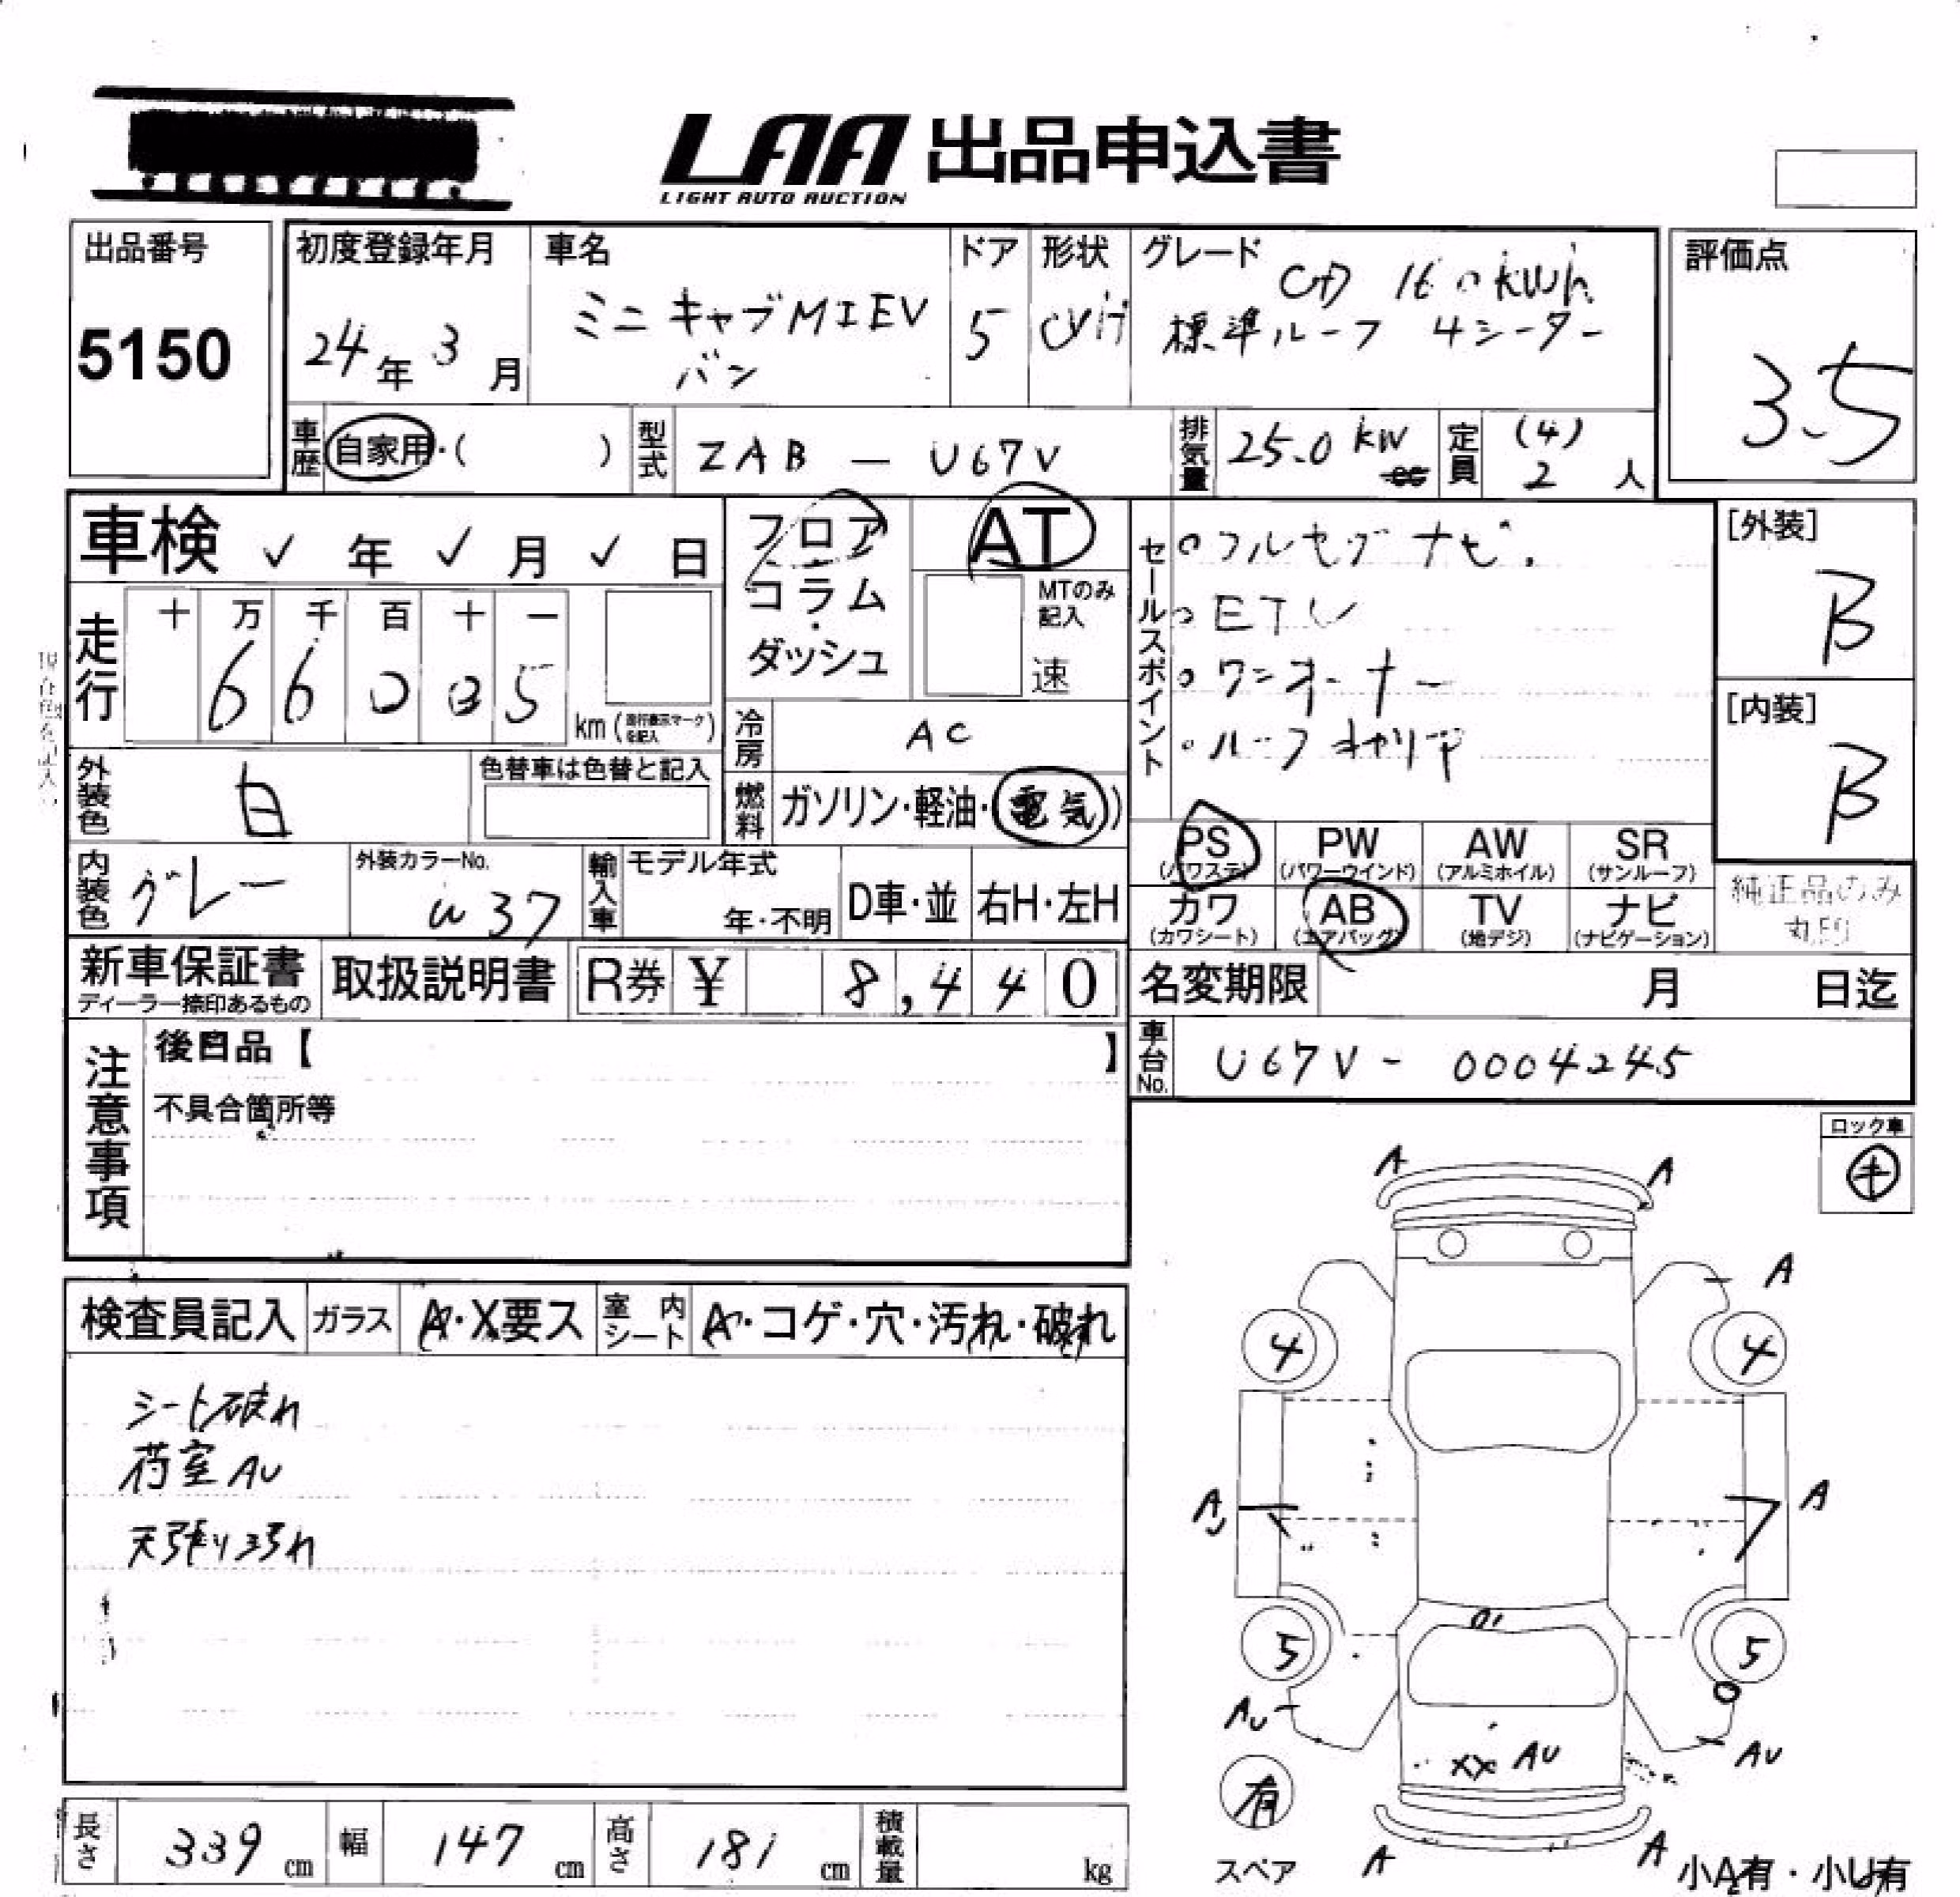 LAA 出品申込書
LIGHT AUTO AUCTION
出品番号
5150
初度登録年月
24年 3月
車名
ミニキャブMIEV
バン
ドア
5
形状
グレード
CD 16.0kWh
標準ルーフ 4シーター
評価点
3.5
車歴
自家用・( )
型式
ZAB － U67V
排気量
25.0 kW
cc
定員
(4)
2 人
車検 ✓ 年 ✓ 月 ✓ 日
走行
十 万 千 百 十 一
6 6 0 0 5
km (走行表示マークを記入)
フロア
・
コラム
・
ダッシュ
AT
MTのみ
記入
速
冷房
AC
燃料
ガソリン・軽油・(電気)
セールスポイント
○フルセグナビ.
○ETC
○ワンオーナー
○ルーフキャリア
[外装]
B
[内装]
B
外装色
白
色替車は色替と記入
内装色
グレー
外装カラーNo.
W37
輸入車
モデル年式
年・不明
D車・並
右H・左H
PS
(パワステ)
PW
(パワーウインド)
AW
(アルミホイル)
SR
(サンルーフ)
カワ
(カワシート)
AB
(エアバッグ)
TV
(地デジ)
ナビ
(ナビゲーション)
純正品のみ
丸印
新車保証書
ディーラー捺印あるもの
取扱説明書
R券 ¥ 8,440
名変期限 月 日迄
車台No.
U67V - 0004245
注意事項
後日品【 】
不具合箇所等
ロック車
キ
検査員記入
ガラス
A・X要ス
室内シート
A・コゲ・穴・汚れ・破れ
シート破れ
荷室AU
天張り汚れ
A A
A
4 4
A A
5 5
AU
AU
XX AU
有
スペア
A A
小A有・小U有
長さ
339 cm
幅
147 cm
高さ
181 cm
積載量
kg